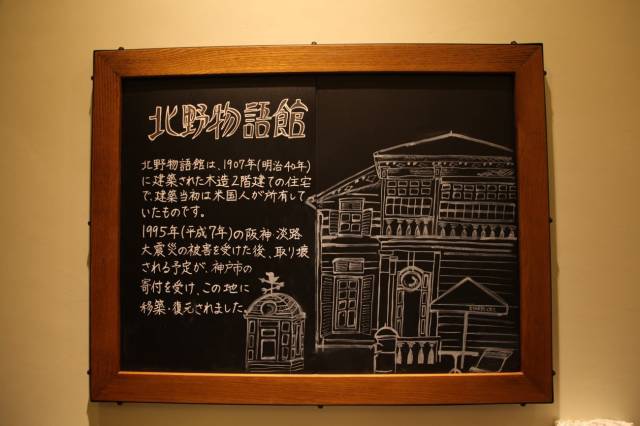 北野物語館
北野物語館は、1907年(明治40年)
に建築された木造2階建ての住宅
で、建築当初は米国人が所有して
いたものです。
1995年(平成7年)の阪神・淡路
大震災の被害を受けた後、取り壊
される予定が、神戸市の
寄付を受け、この地に
移築・復元されました。